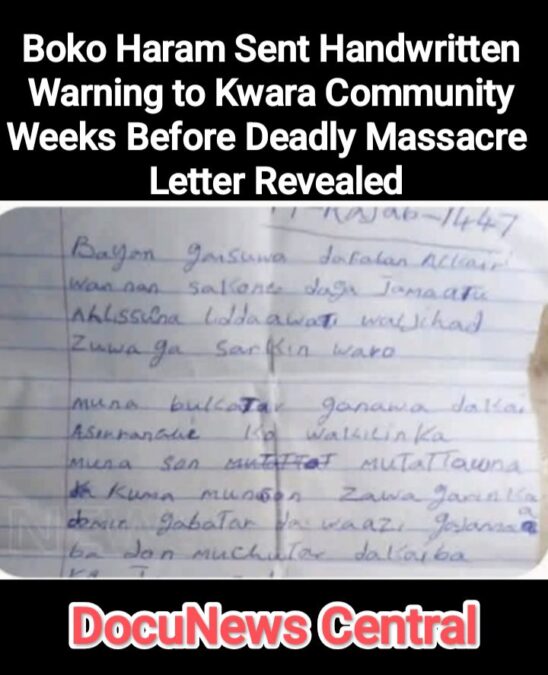 Boko Haram Sent Handwritten
Warning to Kwara Community
Weeks Before Deadly Massacre
Letter Revealed
Rajab-1447
Bayan gaisuwa dafatan Alkairi
wan nan sakone daga Jamaatu
Ahlissuna liddaawati waljihad
Zuwa ga Sarkin waro
muna bukatar ganawa dakai
Asirrance ko wakilinka
muna son mutattauna
Kuma munason Zawa garinka
domin gabatar da waazi gajannaa
ba don muchutar dakaiba
DocuNews Central